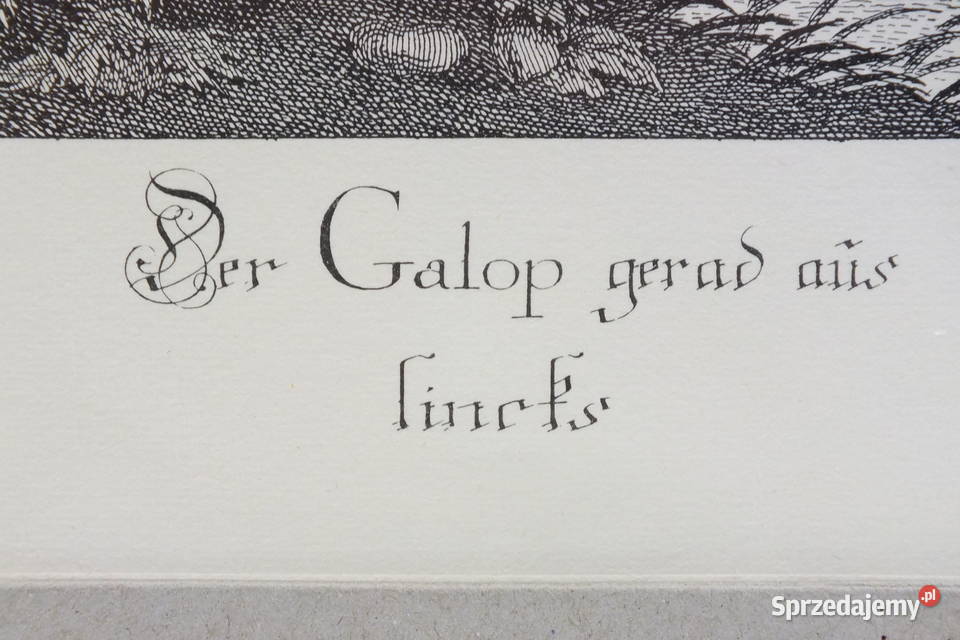 Der Galop gerad aus
lincks
Sprzedajemy.pl